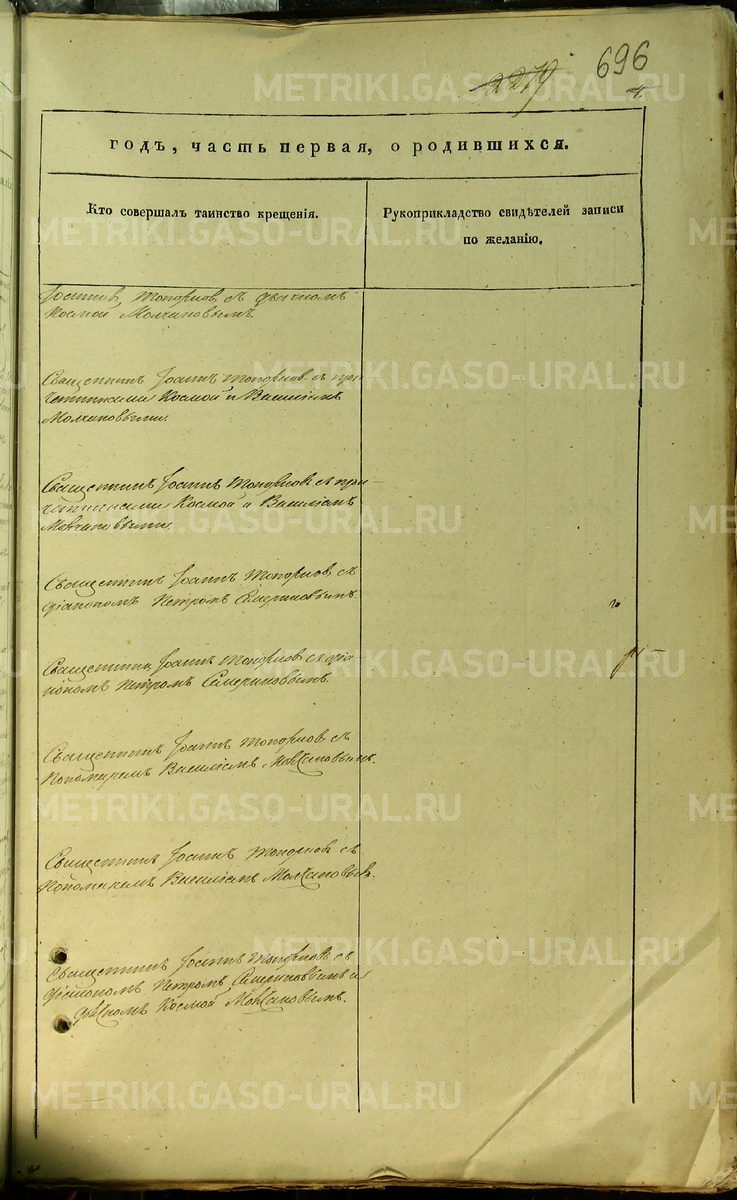 2279
696
METRIKI.GASO-URAL.RU
годъ, часть первая, о родившихся.
Кто совершалъ таинство крещенія.
Рукоприкладство свидѣтелей записи
по желанію.
Іоаннъ Топорновъ съ дьячкомъ
Космой Молчановымъ.
Священникъ Іоаннъ Топорновъ съ при-
четниками Космой и Василіемъ
Молчановыми.
Священникъ Іоаннъ Топорновъ съ при-
четниками Космой и Василіемъ
Молчановыми.
Священникъ Іоаннъ Топорновъ съ
діакономъ Петромъ
Священникъ Іоаннъ Топорновъ съ діа-
кономъ Петромъ
Священникъ Іоаннъ Топорновъ съ
Пономаремъ Василіемъ Молчановымъ.
Священникъ Іоаннъ Топорновъ съ
Пономаремъ Василіемъ Молчановымъ.
Священникъ Іоаннъ Топорновъ съ
діакономъ Петромъ и
дьячкомъ Космой Молчановымъ.